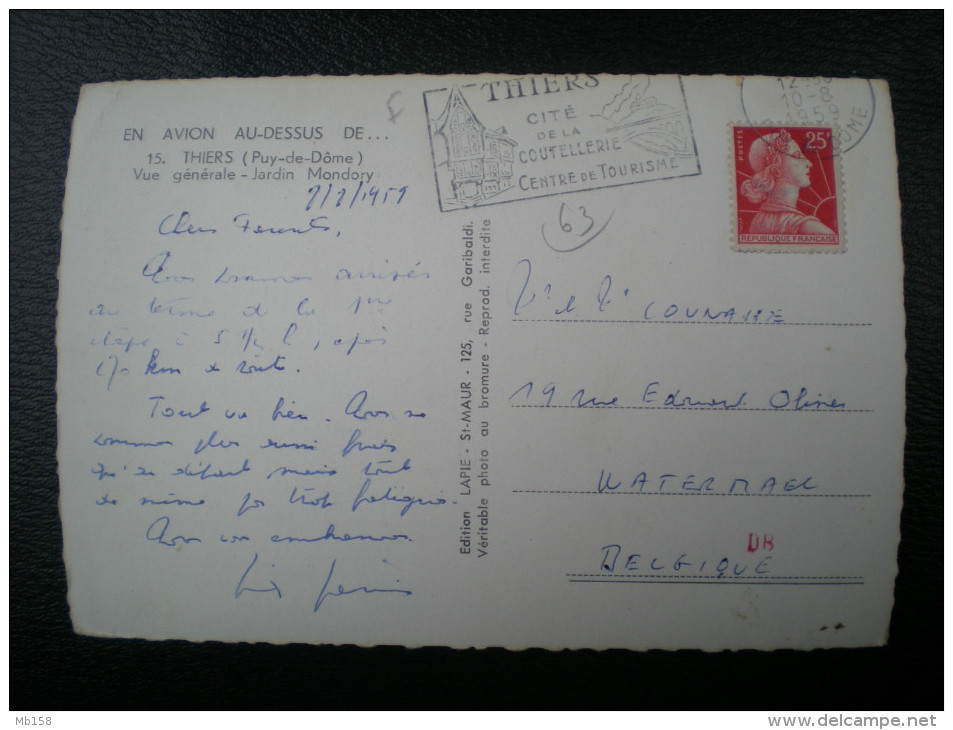 EN AVION AU-DESSUS DE...
15. THIERS (Puy-de-Dôme)
Vue générale - Jardin Mondory
THIERS
CITÉ
DE LA
COUTELLERIE
CENTRE DE TOURISME
10-8
1959
DOME
POSTES
25F
REPUBLIQUE FRANÇAISE
63
Chers Parents,
Nous sommes arrivés
au terme de la 1re
étape à 5 ½ h, après
km de route.
Tout va bien. Nous ne
sommes plus aussi frais
qu'au départ mais tout
de même pas trop fatigués.
Nous vous embrassons.
Edition LAPIE - St-MAUR - 125, rue Garibaldi.
Véritable photo au bromure - Reprod. interdite
19 rue Edouard Olivier
WATERMAEL
BELGIQUE
Mb158
delcampe.net